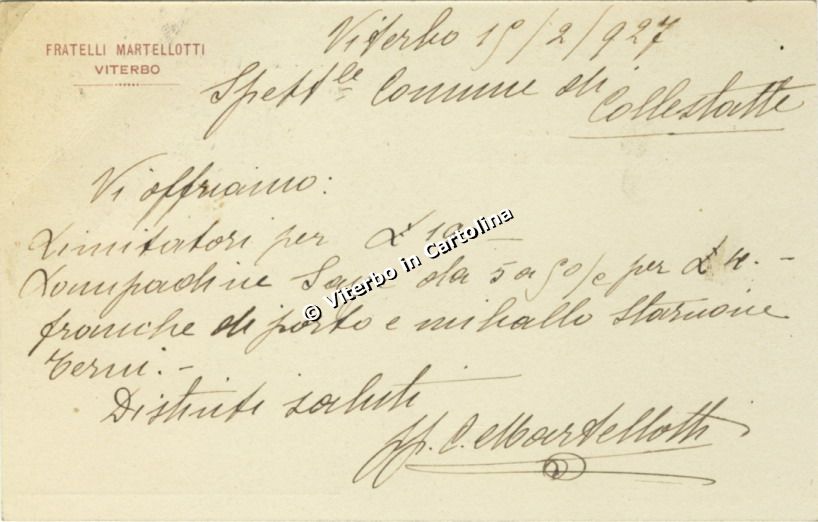 FRATELLI MARTELLOTTI
VITERBO
Viterbo 15/2/927
Spett.le Comune di
Collestatte
Vi offriamo:
Limitatori per £
Lampadine da 5 a 50/c per £ 4.-
franche di porto e imballo stazione
Terni.-
Distinti saluti
ff. C. Martellotti
© Viterbo in Cartolina